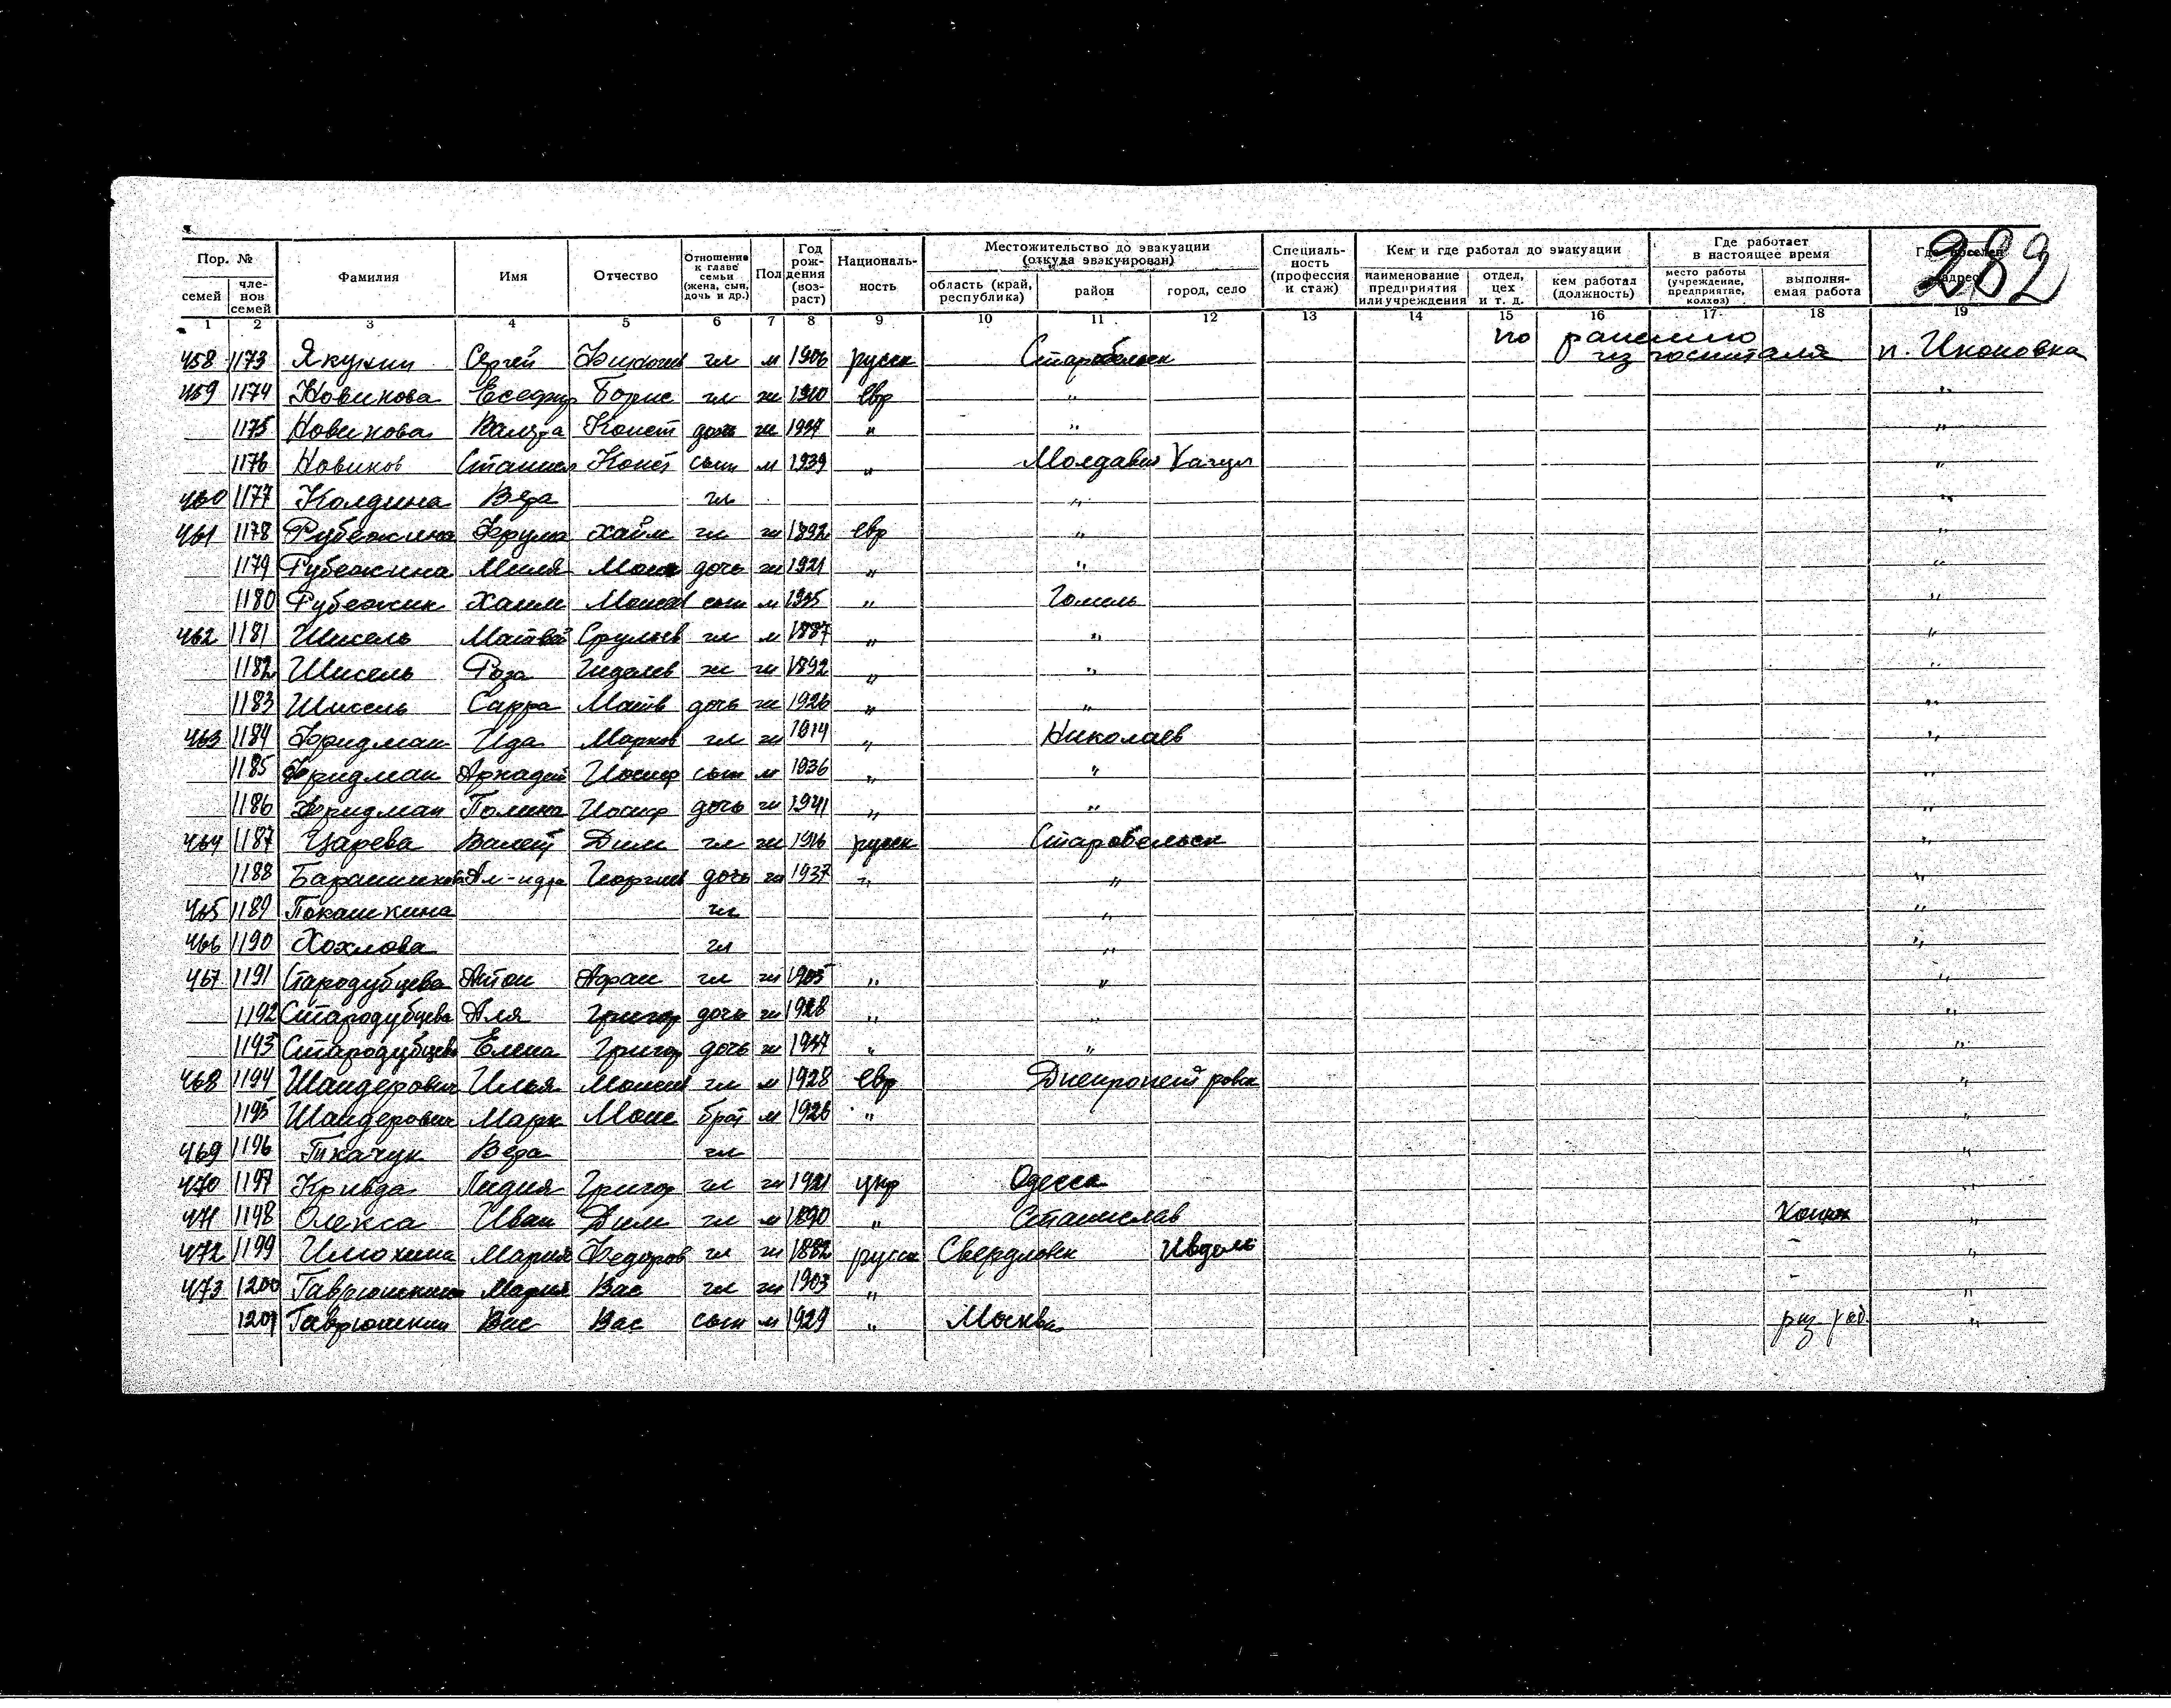 282
Пор. № Фамилия Имя Отчество Отношение к главе семьи (жена, сын, дочь и др.) Пол Год рождения (возраст) Националь-ность Местожительство до эвакуации (откуда эвакуирован) Специаль-ность (профессия и стаж) Кем и где работал до эвакуации Где работает в настоящее время
семей чле-нов семей область (край, республика) район город, село наименование предприятия или учреждения отдел, цех и т. д. кем работал (должность) место работы (учреждение, предприятие, колхоз) выполня-емая работа адрес
1 2 3 4 5 6 7 8 9 10 11 12 13 14 15 16 17 18 19
458 1173 Якунин Сергей гл м 1906 русск Старобельск по ранению из госпиталя п. Иконовка
459 1174 Новикова Есефир Борис гл ж 1910 евр " "
1175 Новикова Конст дочь ж 1937 " " "
1176 Новиков Станисл Конст сын м 1939 " Молдавия Кагул "
460 1177 Колдина Вера гл " "
461 1178 Рубежина Фрума Хайм гл ж 1892 евр " "
1179 Рубежина Миля дочь ж 1921 " " "
1180 Рубежин Хаим Моисе сын м 1935 " Гомель "
462 1181 Шисель Матвей Срульев гл м 1887 " " "
1182 Шисель Роза Гидалев ж ж 1892 " " "
1183 Шисель Сарра Матв дочь ж 1926 " " "
463 1184 Фридман Ида Марков гл ж 1914 " Николаев "
1185 Фридман Аркадий Иосиф сын м 1936 " " "
1186 Фридман Полина Иосиф дочь ж 1941 " " "
464 1187 Царева Валент Дим гл ж 1916 русск Старобельск "
1188 Барашикова Ал-ндра Георгиев дочь ж 1937 " " "
465 1189 Покашкина гл " "
466 1190 Хохлова гл " "
467 1191 Стародубцева Антон Афан гл ж 1905 " " "
1192 Стародубцева Аля Григор дочь ж 1928 " " "
1193 Стародубцева Елена Григор дочь ж 1937 " " "
468 1194 Шандерович Илья Моисе гл м 1928 евр Днепропетровск "
1195 Шандерович Марк Моис брат м 1926 " "
469 1196 Ткачук Вера гл "
470 1197 Кривда Лидия Григор гл ж 1921 укр Одесса "
471 1198 Олекса Иван Дим гл м 1890 " Станислав "
472 1199 Илюхина Мария Федоров гл ж 1882 русск Свердловск Ивдель - "
473 1200 Гаврюшкина Мария Вас гл ж 1903 " - "
1201 Гаврюшкин Вас Вас сын м 1929 " Москва "